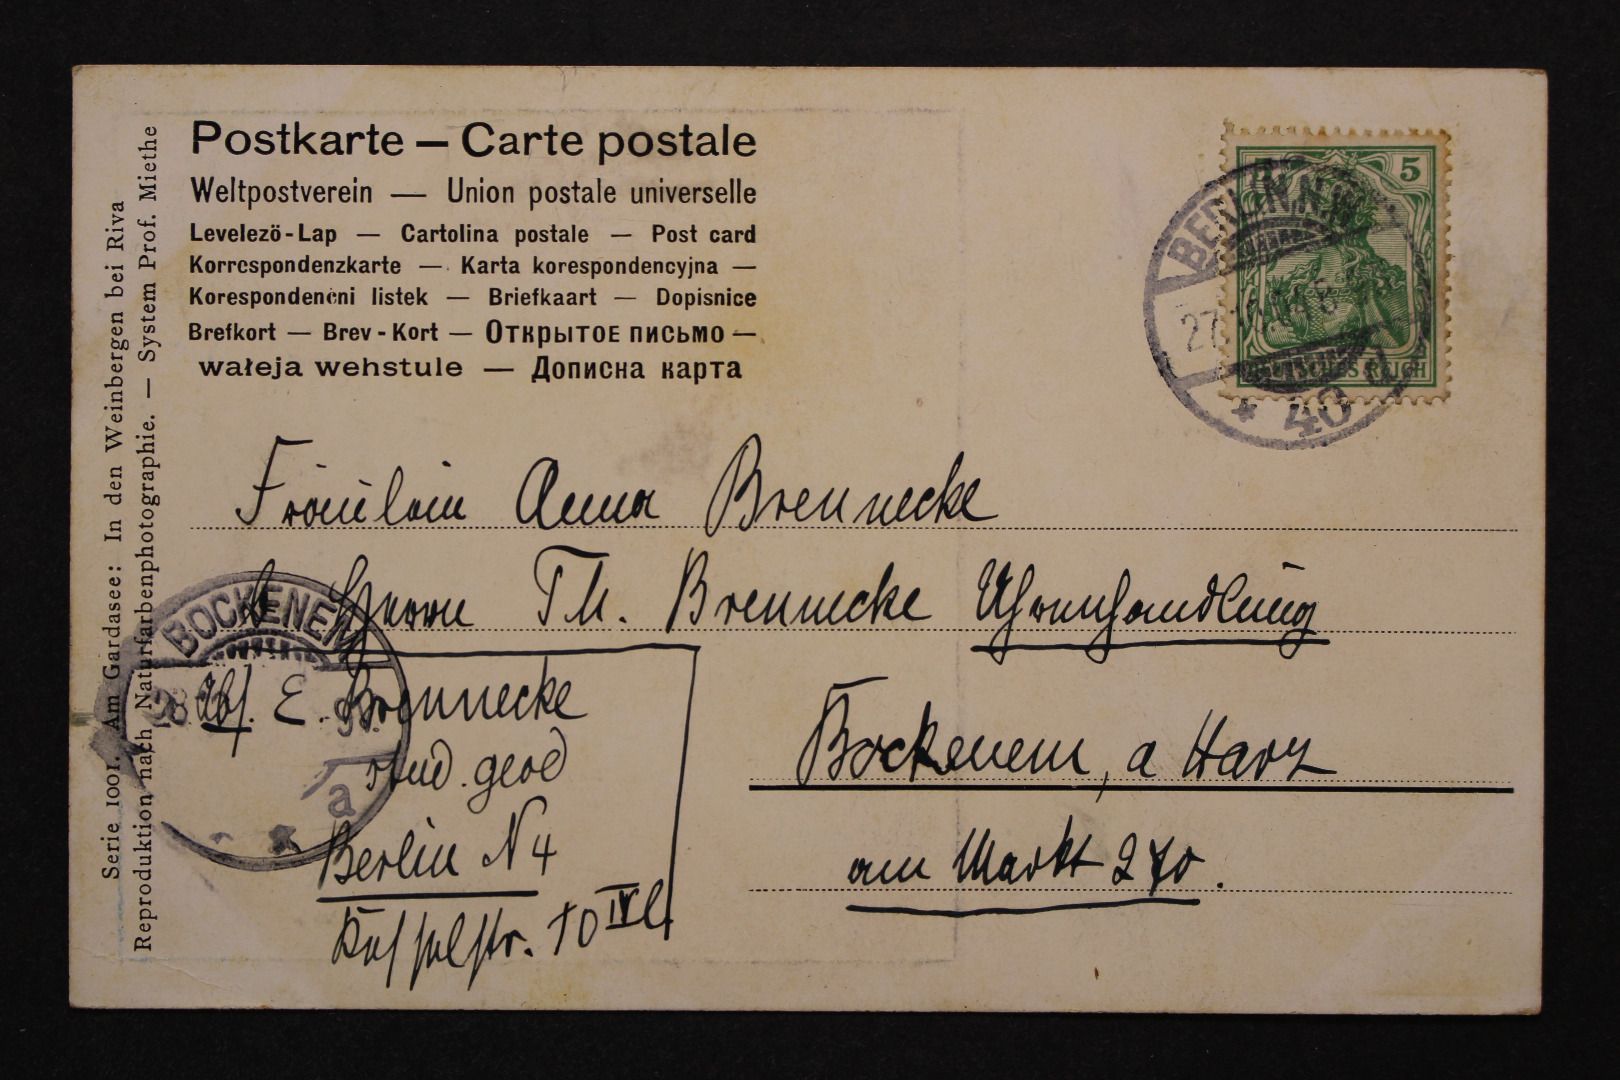 Postkarte — Carte postale
Weltpostverein — Union postale universelle
Levelezö-Lap — Cartolina postale — Post card
Korrcspondenzkarte — Karta korespondencyjna —
Korespondenčni listek — Briefkaart — Dopisnice
Brefkort — Brev-Kort — Открытое письмо —
wałeja wehstule — Дописна карта
5
DEUTSCHES REICH
BERLIN N.W.
27
* 40
Fräulein Anna Brennecke
Herrn Th. Brennecke Uhrenhandlung
Bockenem, a Harz
am Markt 270.
Abs. E. Brennecke
stud. geod
Berlin N 4
Kesselstr. 10 IV l.
BOCKENEM
28
* a
Serie 1001. Am Gardasee: In den Weinbergen bei Riva
Reproduktion nach Naturfarbenphotographie. — System Prof. Miethe